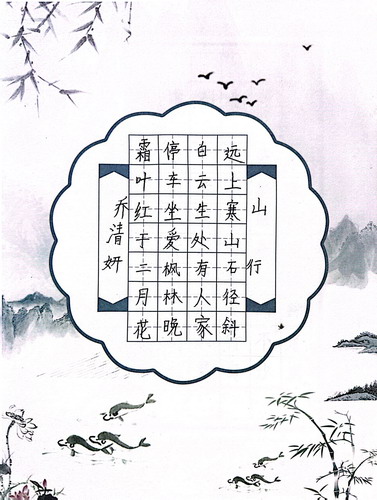 山行
远上寒山石径斜
白云生处有人家
停车坐爱枫林晚
霜叶红于二月花
乔清妍